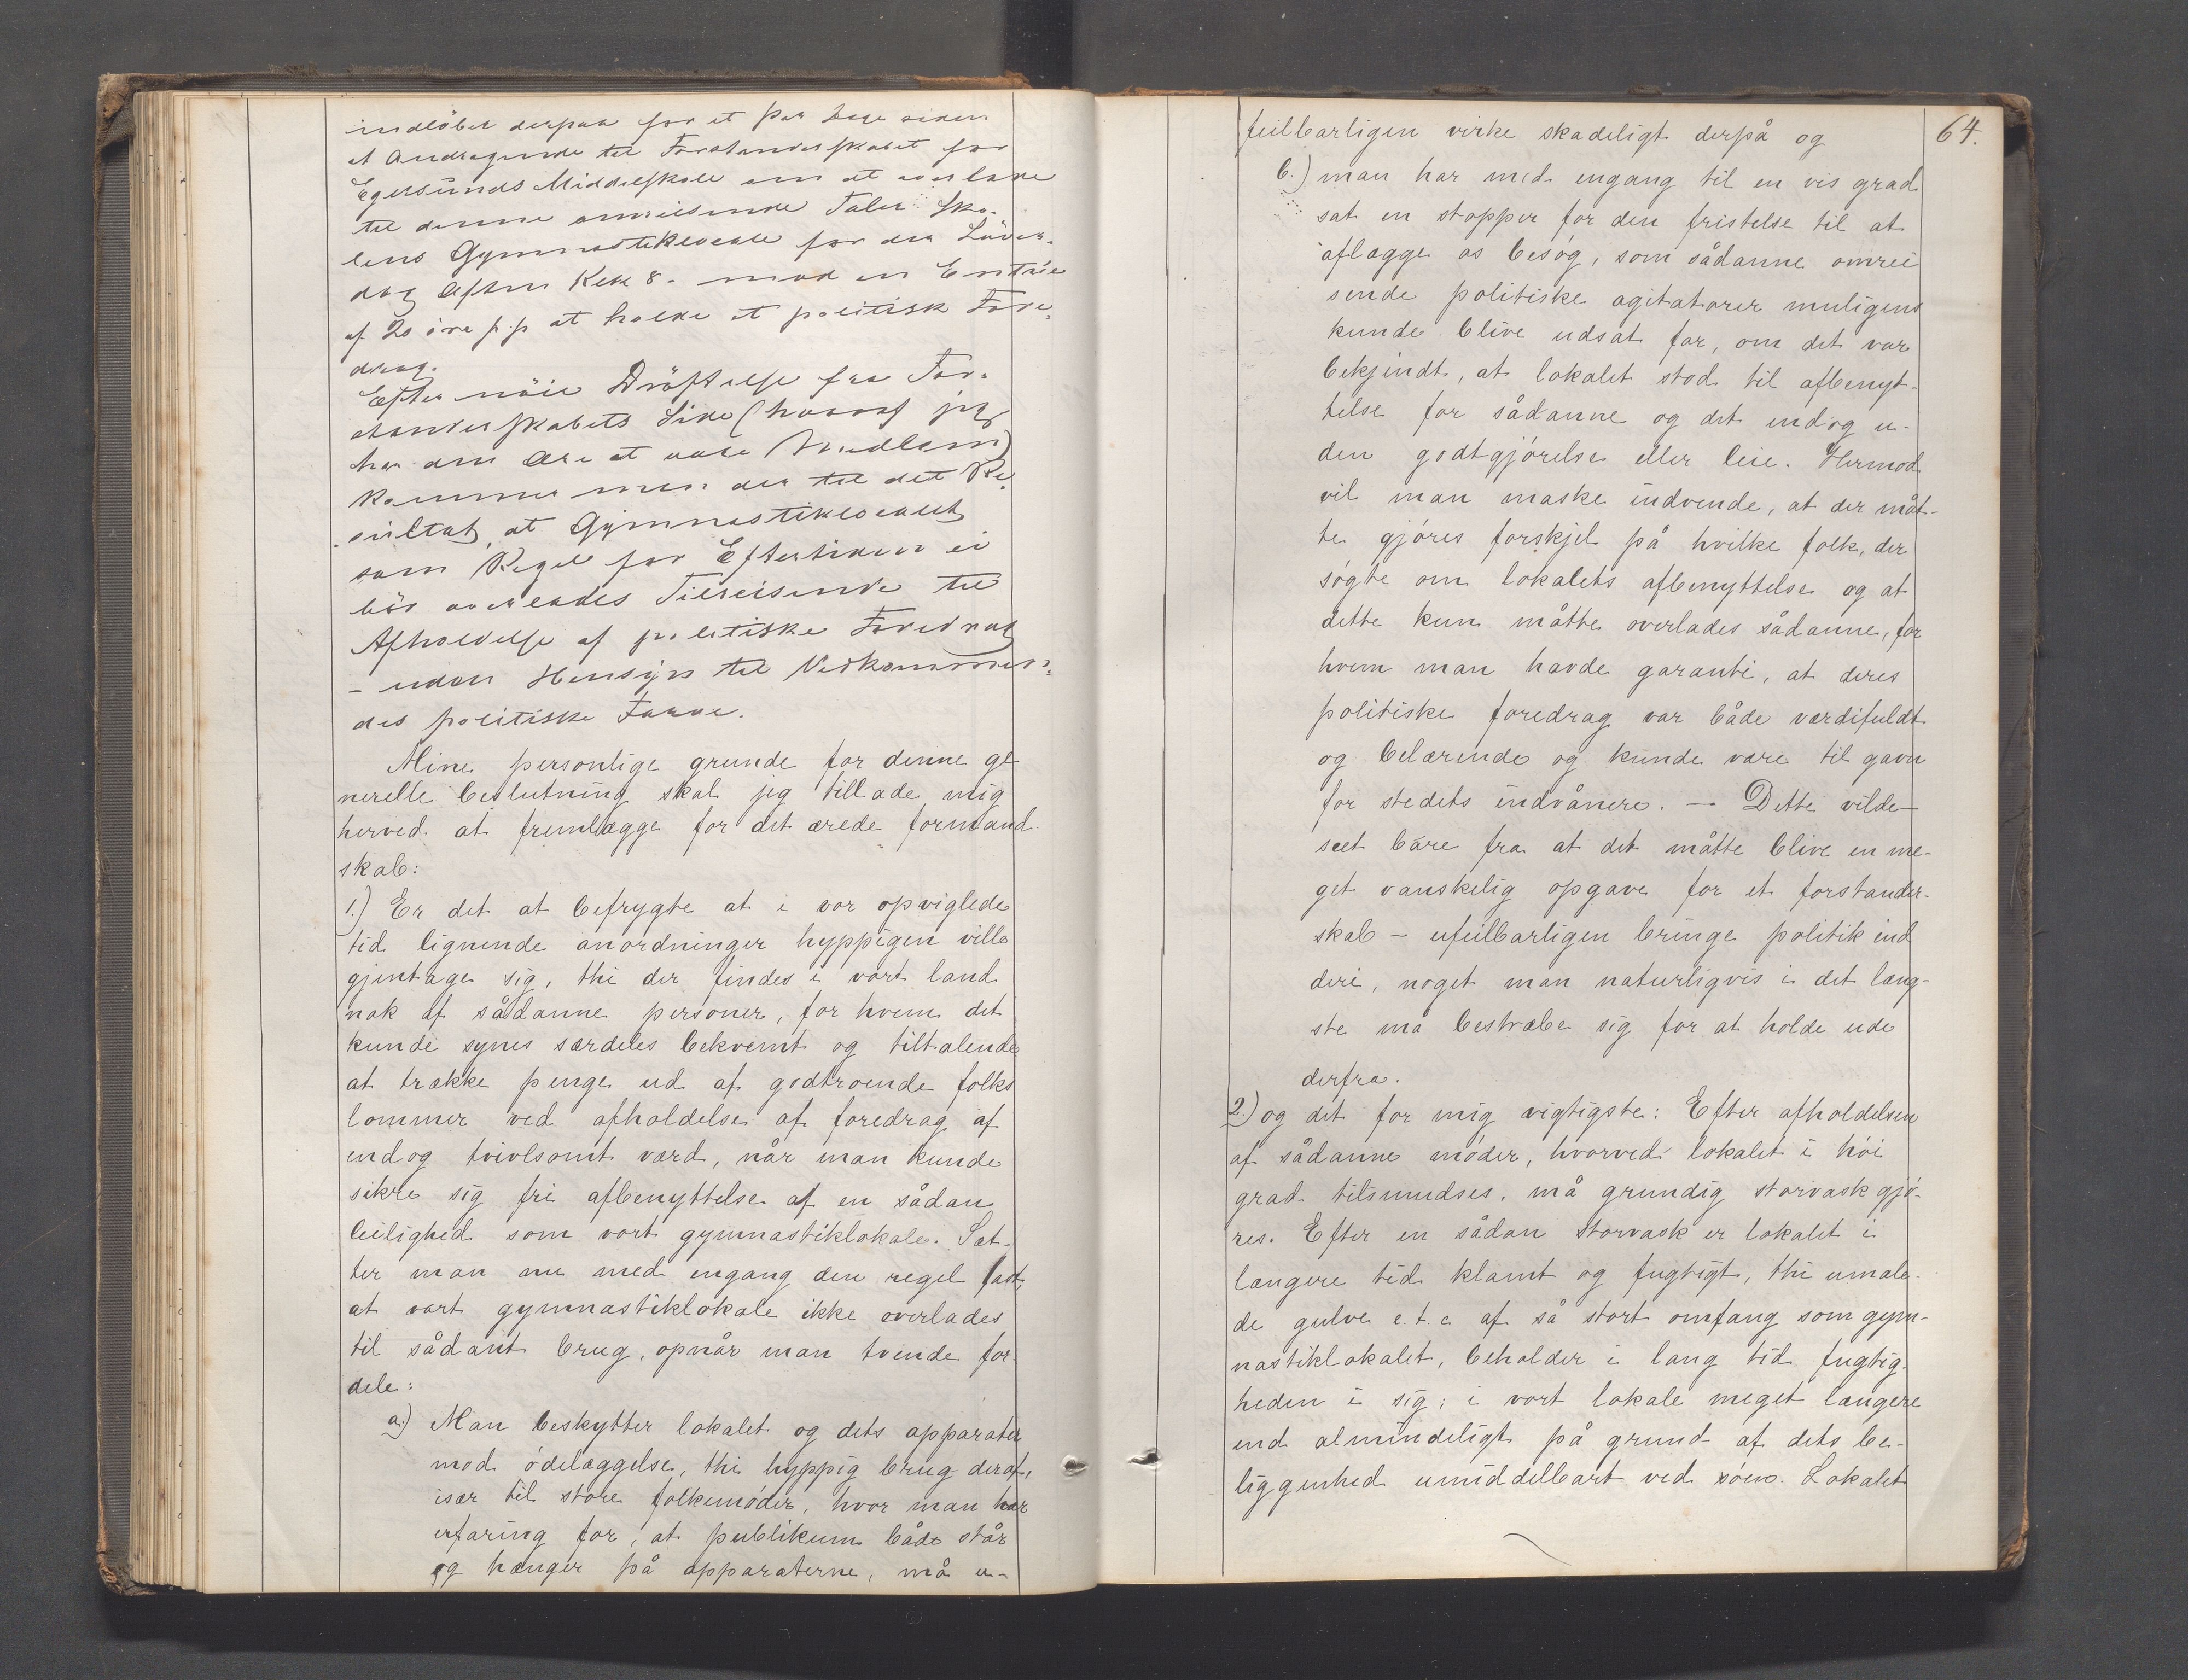 indløber derpaa for et Par Dage siden
et Andragende til Forstanderskabet for
Egersunds Middelskole om at overlade
til denne omreisende Taler Sko-
lens Gymnastiklocale for der Løver-
dag Aften Kck 8 - mod en Entrée
af 20 øre p.p at holde et politisk Fore-
drag.
Efter nøie Drøftelse fra For-
standerskabets Side (hvoraf jeg
har den Ære at være Medlem)
kommer man der til det Re-
sultat, at Gymnastiklocalet
som Regel for Eftertiden ei
bør overlades Tilreisende til
Afholdelse af politiske Foredrag
- uden Hensyn til Vedkommen-
des politiske Farve.
Mine personlige grunde for denne ge
nerelle beslutning skal jeg tillade mig
herved at fremlægge for det ærede formand-
skab:
1.) Er det at befrygte at i vor opviglede
tid lignende anordninger hyppigen ville
gjentage sig, thi der findes i vort land
nok af sådanne personer, for hvem det
kunde synes særdeles bekvemt og tiltalende
at trække penge ud af godtroende folks
lommer ved afholdelse af foredrag af
endog tvivlsomt værd, når man kunde
sikre sig fri afbenyttelse af en sådan
leilighed som vort gymnastiklokale. Sæt-
ter man nu med engang den regel fast,
at vort gymnastiklokale ikke overlades
til sådant brug, opnår man tvende for-
dele:
a.) Man beskytter lokalet og dets apparater
mod ødelæggelse, thi hyppig brug deraf,
især til store folkemøder, hvor man har
erfaring for, at publikum både står
og hænger på apparaterne, må u-
64.
feilbarligen virke skadeligt derpå og
b.) man har med engang til en vis grad
sat en stopper for den fristelse til at
aflægge os besøg, som sådanne omrei
sende politiske agitatorer muligens
kunde blive udsat for, om det var
bekjendt, at lokalet stod til afbenyt-
telse for sådanne og det endog u-
den godtgjørelse eller leie. Hermod
vil man maske indvende, at der måt-
te gjøres forskjel på hvilke folk, der
søgte om lokalets afbenyttelse og at
dette kun måtte overlades sådanne, for
hvem man havde garanti, at deres
politiske foredrag var både værdifuldt
og belærende og kunde være til gavn
for stedets indvånere. — Dette vilde —
seet bare fra at det måtte blive en me-
get vanskelig opgave for et forstander-
skab - ufeilbarligen bringe politik ind
deri, noget man naturligvis i det læng-
ste må bestræbe sig for at holde ude
derfra.
2.) og det for mig vigtigste: Efter afholdelsen
af sådanne møder, hvorved lokalet i høi
grad tilsmudses, må grundig storvask gjø-
res. Efter en sådan storvask er lokalet i
længere tid klamt og fugtigt, thi umale-
de gulve e.t.c af så stort omfang som gym-
nastiklokalet, beholder i lang tid fugtig-
heden i sig; i vort lokale meget længere
end almindeligt på grund af dets be-
liggenhed umiddelbart ved søen. Lokalet